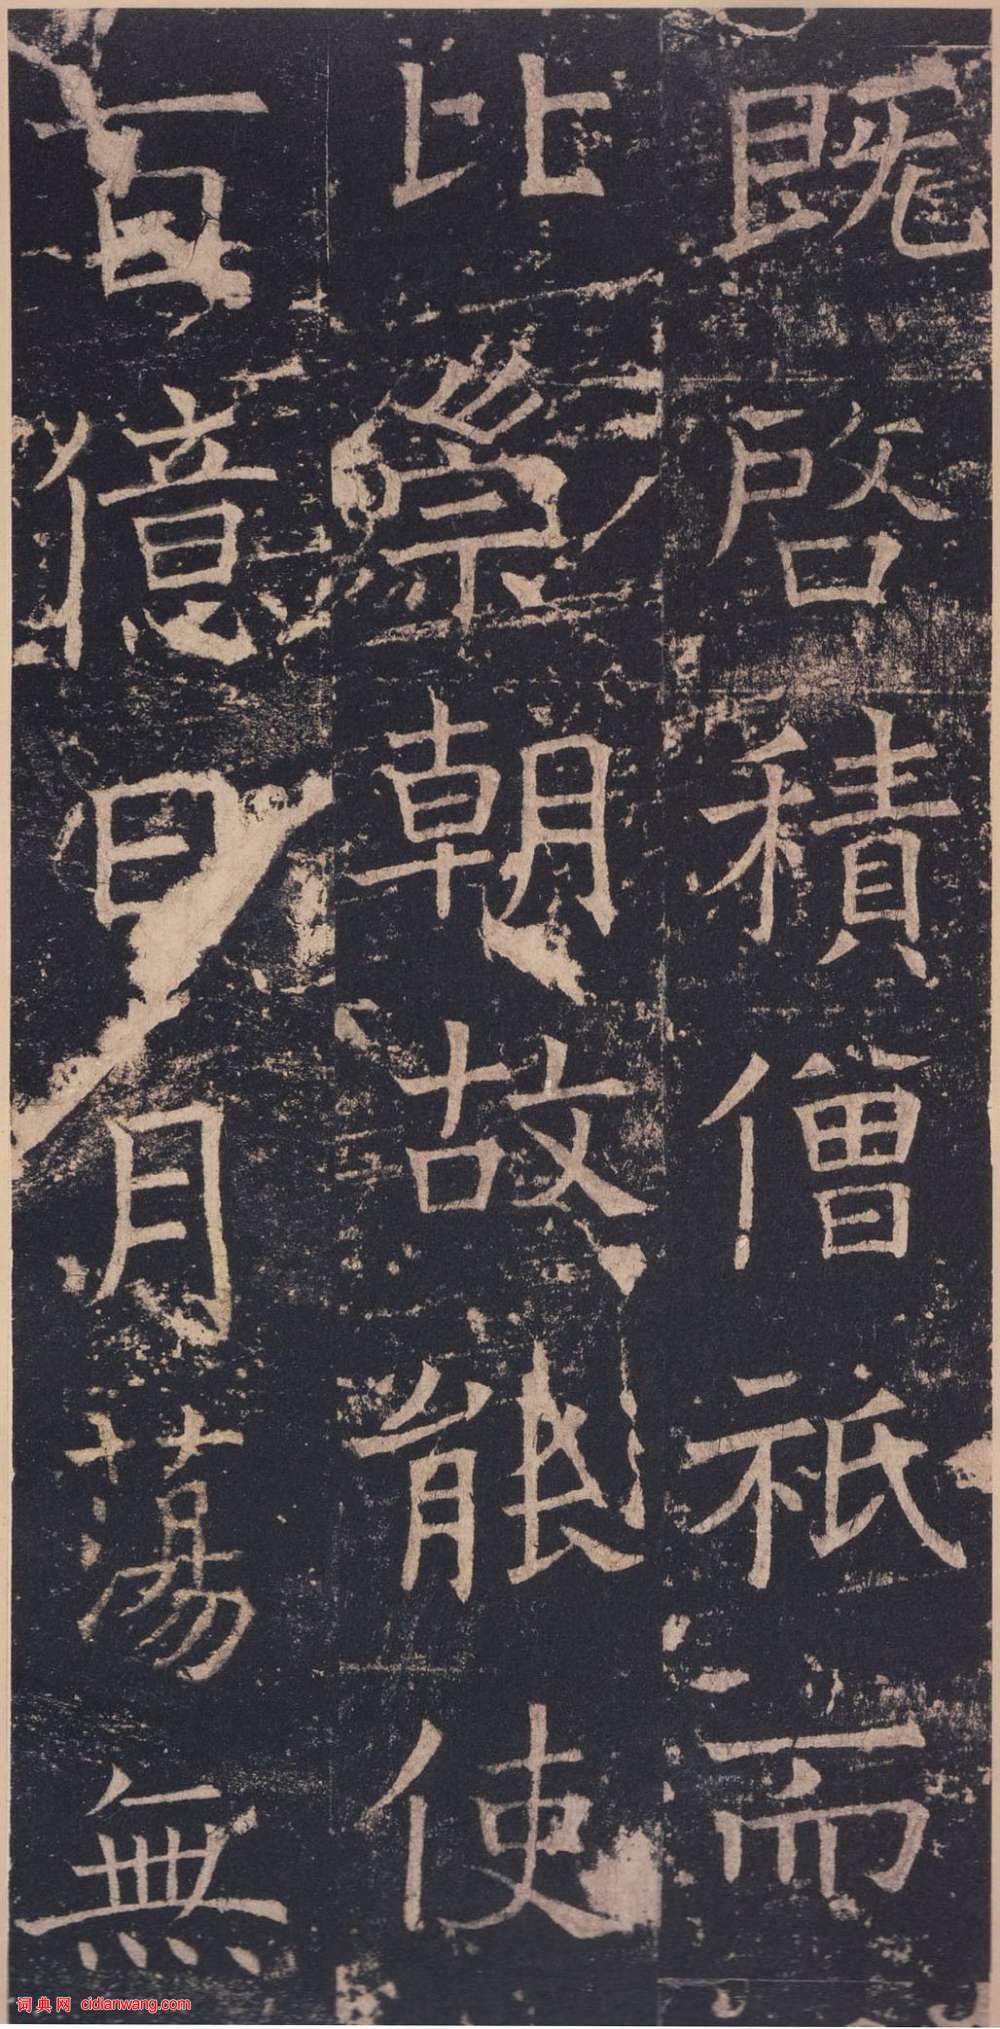 既啓積僧祇而
比崇朝故能使
百億日月蕩無
词典网 cidianwang.com